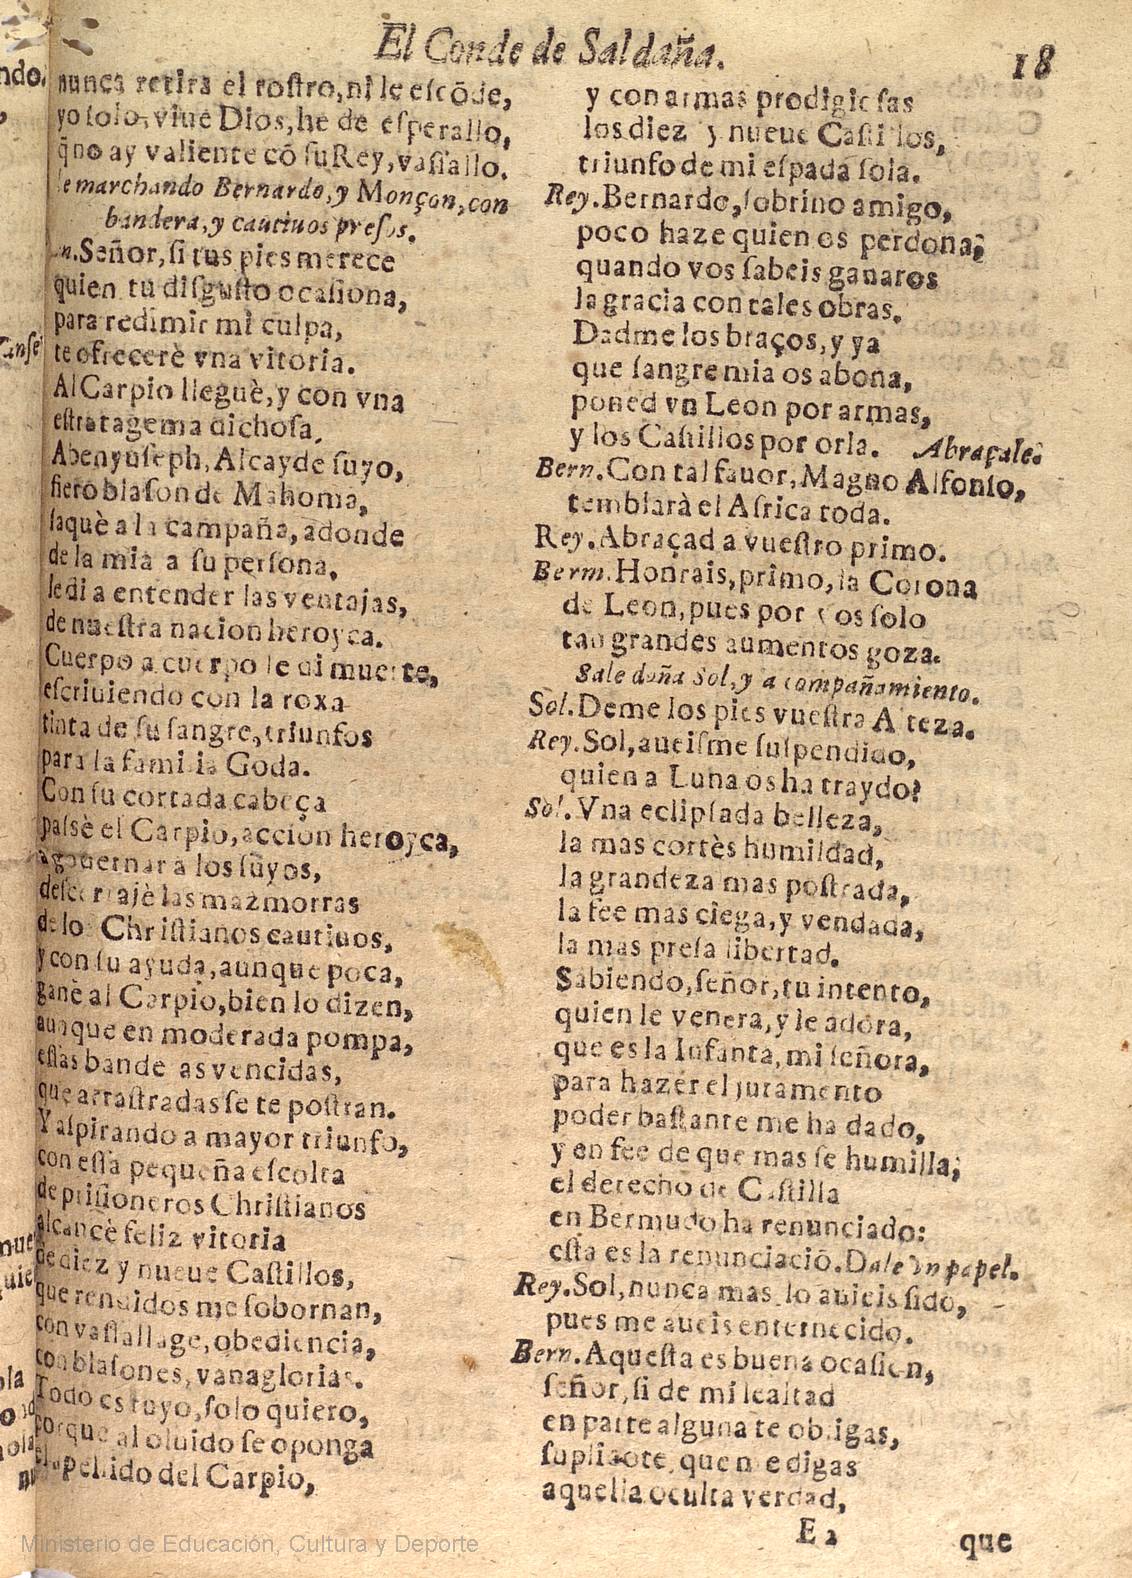 El Conde de Saldaña.
18
nunca retira el rostro, ni le escõde,
yo solo, viue Dios, he de esperallo,
q̃ no ay valiente cõ su Rey, vassallo.
marchando Bernardo, y Monçon, con
bandera, y cautiuos presos.
Señor, si tus pies merece
quien tu disgusto ocasiona,
para redimir mi culpa,
te ofrecerè vna vitoria.
Al Carpio lleguè, y con vna
estratagema dichosa,
Abenyuseph, Alcayde suyo,
fiero blason de Mahoma,
saquè a la campaña, adonde
de la mia a su persona,
le di a entender las ventajas,
de nuestra nacion heroyca.
Cuerpo a cuerpo le di muerte,
escriuiendo con la roxa
tinta de su sangre, triunfos
para la familia Goda.
Con su cortada cabeça
passè el Carpio, accion heroyca,
a gouernar a los suyos,
descerrajè las mazmorras
de los Christianos cautiuos,
y con su ayuda, aunque poca,
ganè al Carpio, bien lo dizen,
aunque en moderada pompa,
estas banderas vencidas,
que arrastradas se te postran.
Y aspirando a mayor triunfo,
con esta pequeña escolta
de prisioneros Christianos
alcancè feliz vitoria
de diez y nueue Castillos,
que rendidos me sobornan,
con vassallage, obediencia,
con blasones, vanaglorias.
Todo es tuyo, solo quiero,
porque al oluido se oponga
el apellido del Carpio,
y con armas prodigiosas
los diez y nueue Castillos,
triunfo de mi espada sola.
Rey. Bernardo, sobrino amigo,
poco haze quien os perdona,
quando vos sabeis ganaros
la gracia con tales obras.
Dadme los braços, y ya
que sangre mia os abona,
poned vn Leon por armas,
y los Castillos por orla. Abraçale.
Bern. Con tal fauor, Magno Alfonso,
temblarà el Africa toda.
Rey. Abraçad a vuestro primo.
Berm. Honrais, primo, la Corona
de Leon, pues por vos solo
tan grandes aumentos goza.
Sale doña Sol, y acompañamiento.
Sol. Deme los pies vuestra Alteza.
Rey. Sol, aueisme suspendido,
quien a Luna os ha traydo?
Sol. Vna eclipsada belleza,
la mas cortès humildad,
la grandeza mas postrada,
la fee mas ciega, y vendada,
la mas presa libertad.
Sabiendo, señor, tu intento,
quien le venera, y le adora,
que es la Infanta, mi señora,
para hazer el juramento
poder bastante me ha dado,
y en fee de que mas se humilla,
el derecho de Castilla
en Bermudo ha renunciado:
esta es la renunciaciõ. Dale vn papel.
Rey. Sol, nunca mas lo auieis sido,
pues me aueis enternecido.
Bern. Aquesta es buena ocasion,
señor, si de mi lealtad
en parte alguna te obligas,
suplicote que me digas
aquella oculta verdad,
E 2
que
Ministerio de Educación, Cultura y Deporte